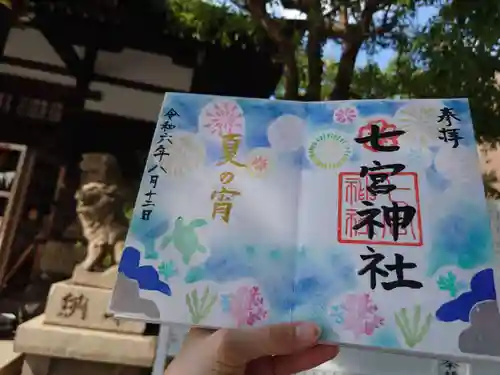 奉拝
七宮神社
夏の宵
令和六年八月十二日
奉納